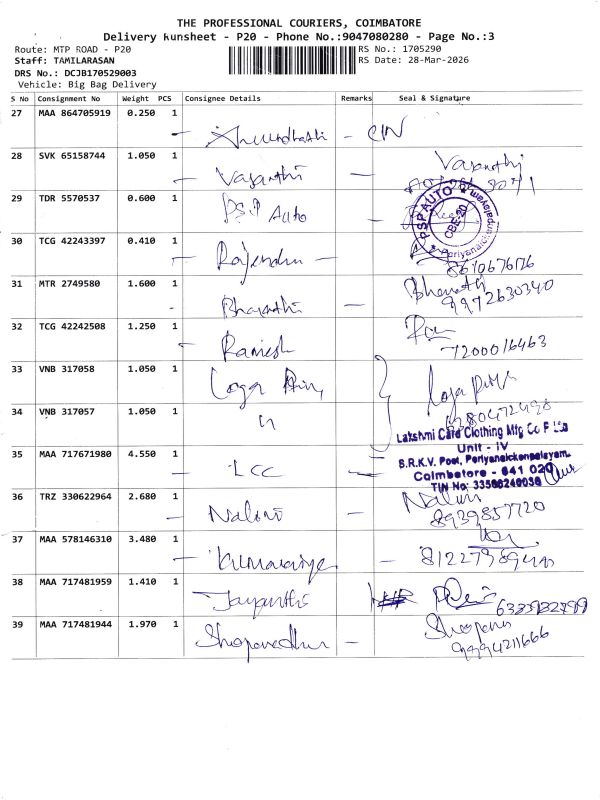 THE PROFESSIONAL COURIERS, COIMBATORE
Delivery Runsheet - P20 - Phone No.:9047080280 - Page No.:3
Route: MTP ROAD - P20
Staff: TAMILARASAN
DRS No.: DCJB170529003
Vehicle: Big Bag Delivery
RS No.: 1705290
RS Date: 28-Mar-2026
S No Consignment No Weight PCS Consignee Details Remarks Seal & Signature
27 MAA 864705919 0.250 1
28 SVK 65158744 1.050 1 Vasanthi Vasanthi
29 TDR 5570537 0.600 1 PSP Auto
PSP AUTO CBE-20 Periyanaickenpalayam
30 TCG 42243397 0.410 1 Rajendran 8610676176
31 MTR 2749580 1.600 1 Bharathi Bharathi
9972630340
32 TCG 42242508 1.250 1 Ramesh
7200016463
33 VNB 317058 1.050 1
34 VNB 317057 1.050 1
Lakshmi Card Clothing Mfg Co P Ltd
Unit - IV
35 MAA 717671980 4.550 1 LCC
S.R.K.V. Post, Periyanaickenpalayam.
Coimbatore - 641 020
TIN No: 33566240038
36 TRZ 330622964 2.680 1 Nalini Nalini
8939857720
37 MAA 578146310 3.480 1
38 MAA 717481959 1.410 1 Jayanthi
39 MAA 717481944 1.970 1
9994211666